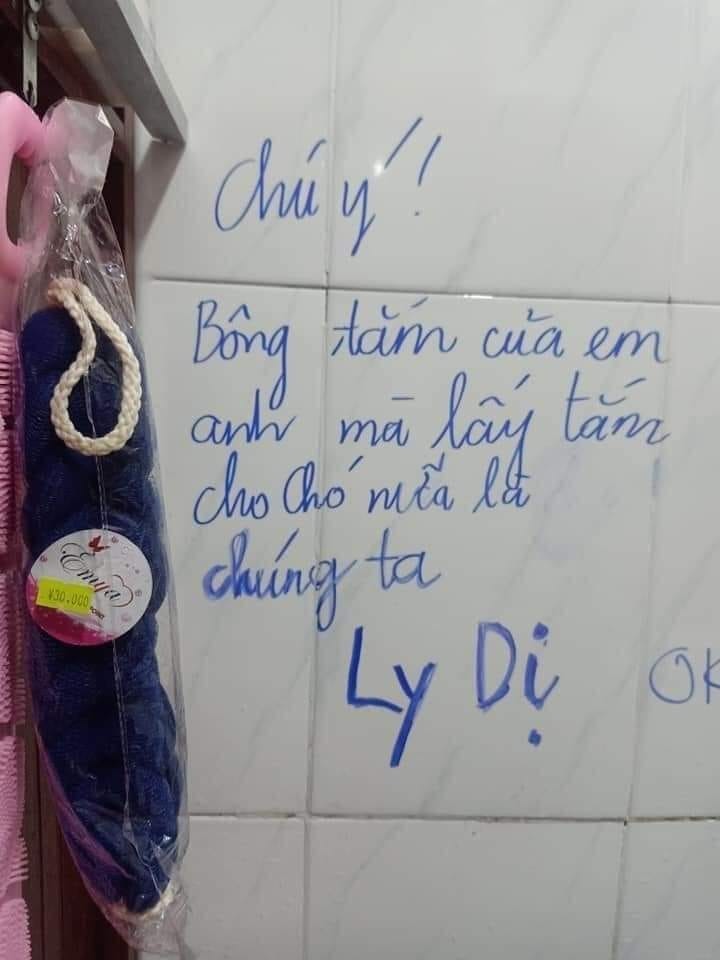 Chú ý!
Bông tắm của em
anh mà lấy tắm
cho Chó nữa là
chúng ta
Ly Dị OK
Emya
¥30.000